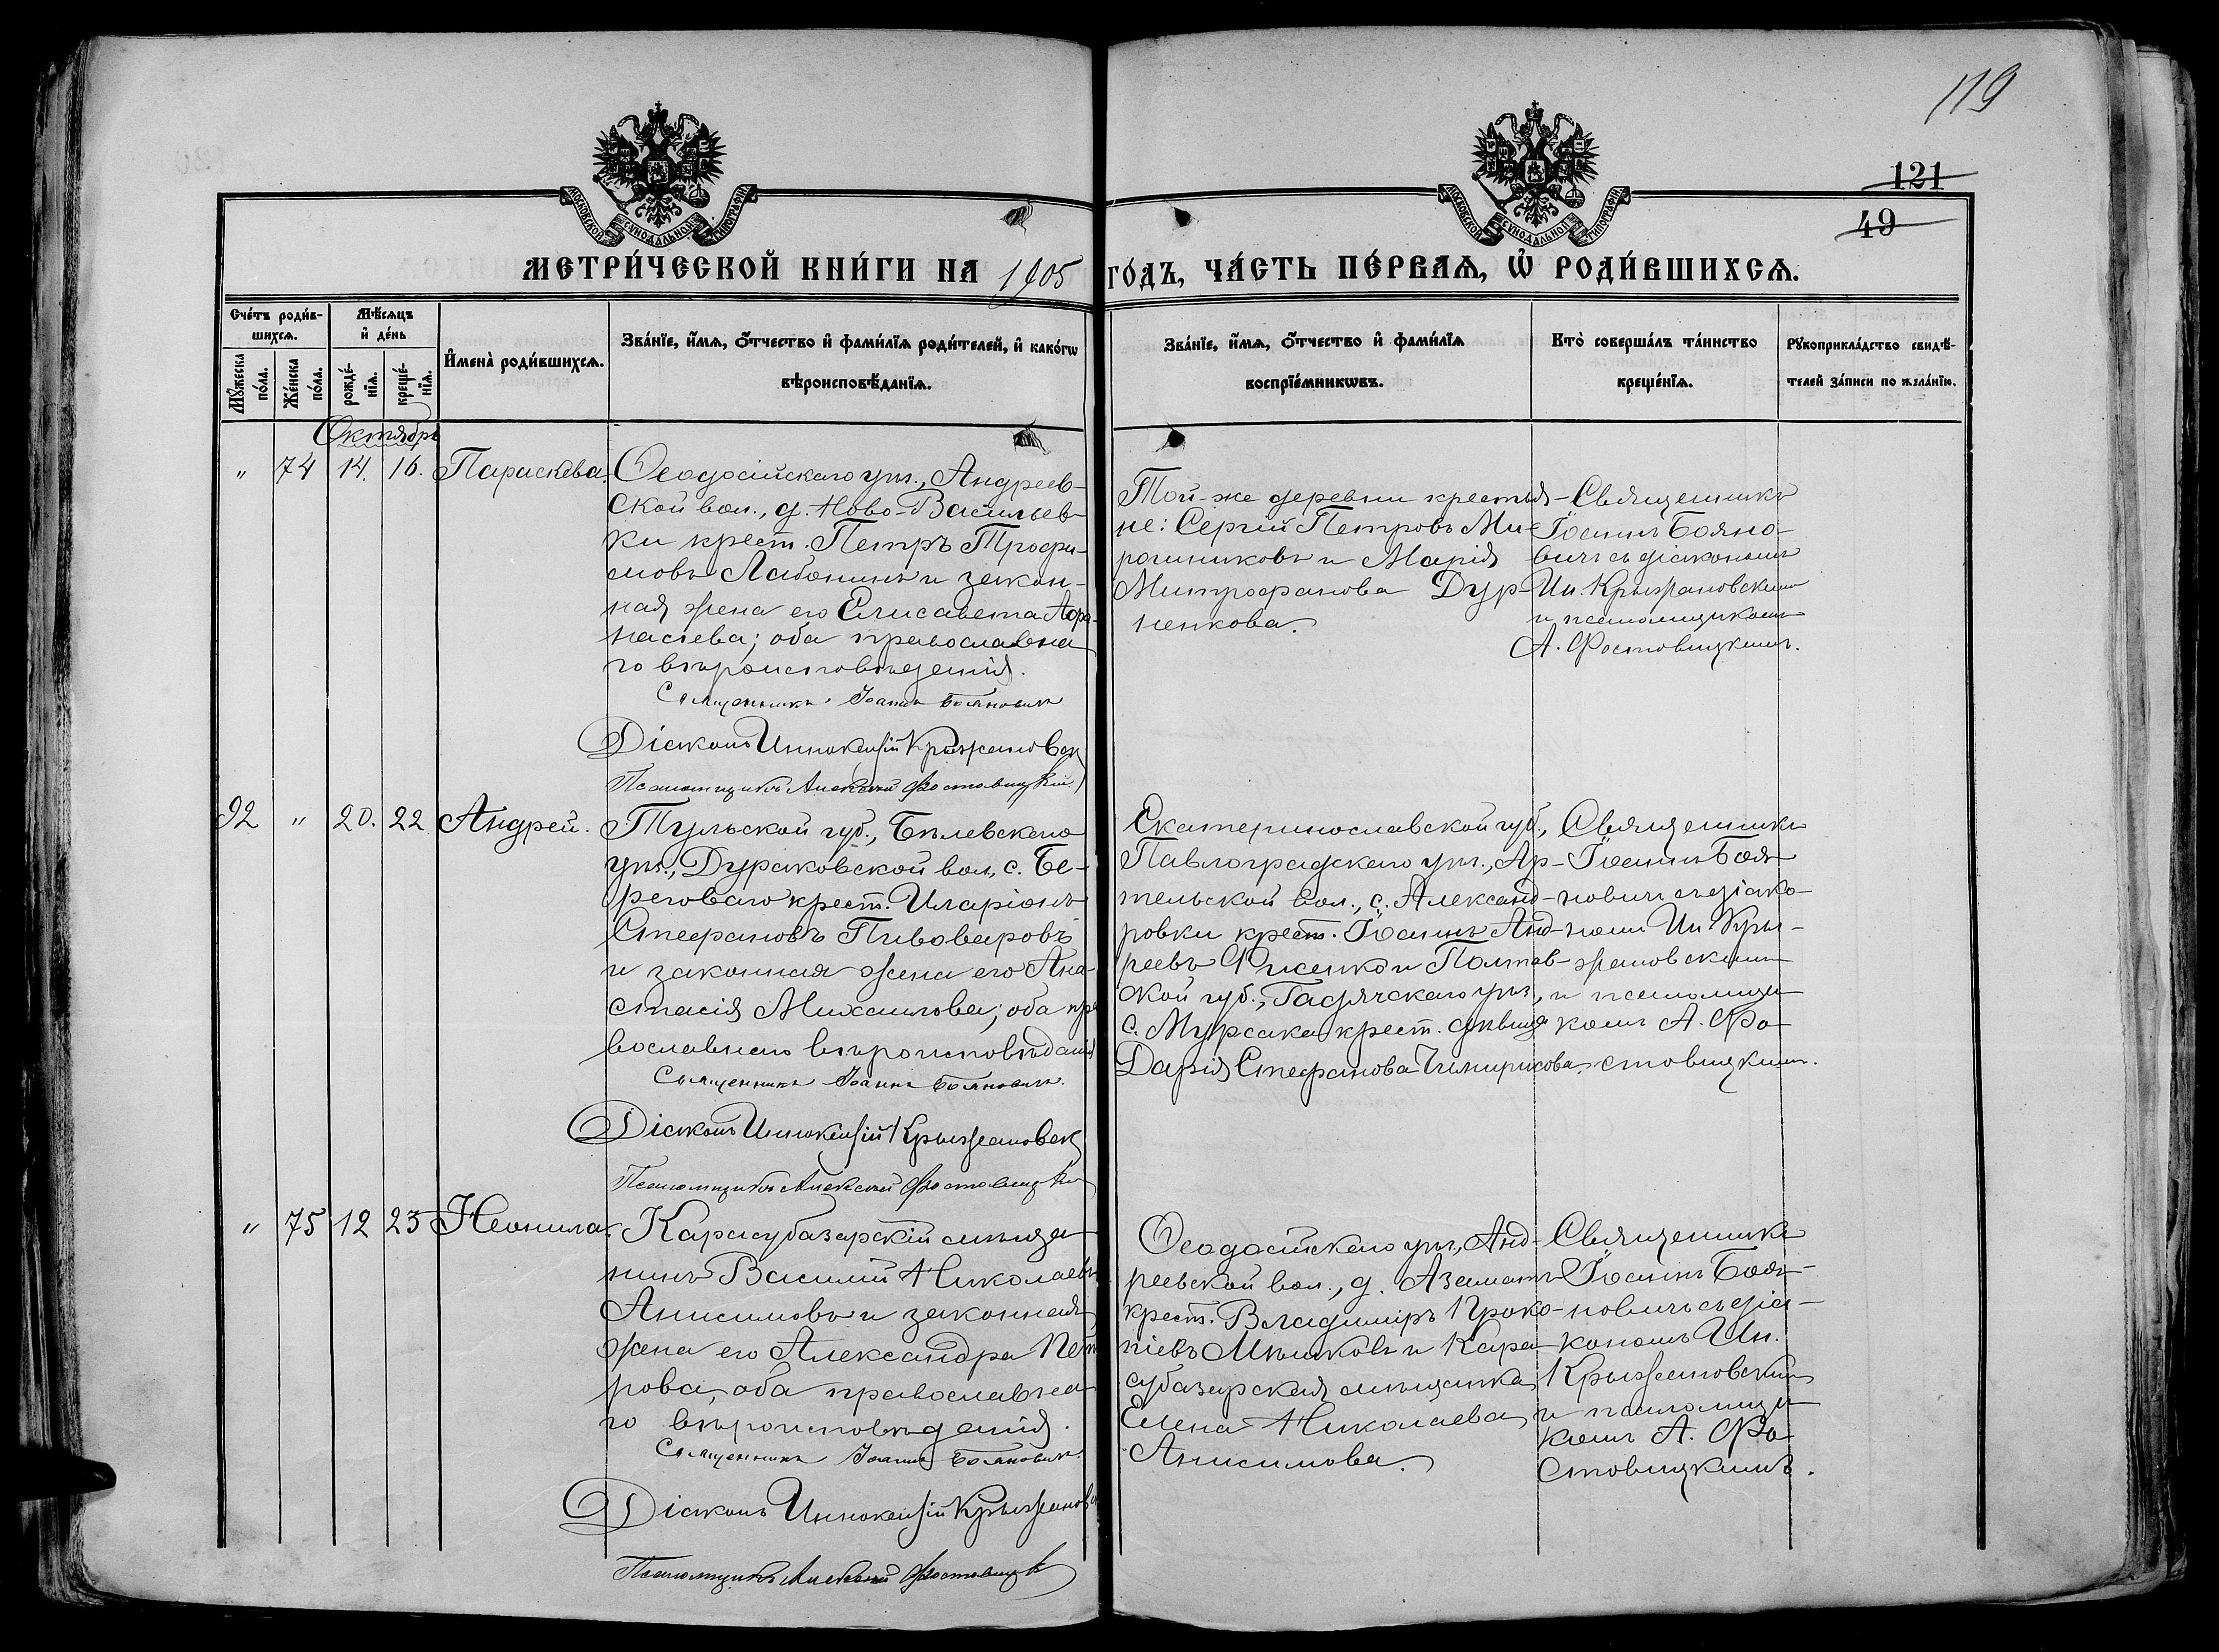 119
121
49
МОСКОВСКОЙ СѴНОДАЛЬНОЙ ТИПОГРАФІИ
МОСКОВСКОЙ СѴНОДАЛЬНОЙ ТИПОГРАФІИ
МЕТРИ́ЧЕСКОЙ КНИ́ГИ НА 1905 ГО́ДЪ, ЧА́СТЬ ПЕ́РВАѦ, Ѽ РОДИ́ВШИХСѦ.
Сче́тъ роди́в-
шихсѧ.
Мꙋ́жеска по́ла.
Же́нска по́ла.
Мѣ́сѧцъ
и҆ де́нь
рожде́-
нїѧ.
креще́-
нїѧ.
И҆мена̀ роди́вшихсѧ.
Зва́нїе, и҆́мѧ, ѻ҆́тчество и҆ фами́лїѧ роди́телей, и҆ како́гѡ
вѣроисповѣ́данїѧ.
Зва́нїе, и҆́мѧ, ѻ҆́тчество и҆ фами́лїѧ
воспрїе́мникѡвъ.
Кто̀ соверша́лъ та́инство
креще́нїѧ.
Рꙋкоприкла́дство свидѣ́-
телей за́писи по жела́нїю.
Октябрь
" 74 14. 16. Параскева.
Ѳеодосійскаго уѣз., Андреев-
ской вол., д. Ново-Васильев-
ки крест. Петръ Трофи-
мовъ Лабонинъ и закон-
ная жена его Елисавета Аѳа-
насіева; оба православна
го вѣроисповѣданія.
Священникъ Іоаннъ Бояновичъ
Діаконъ Иннокентій Крыжановск
Псаломщикъ Алексѣй Фостовицкій
Той-же деревни крестья-
не: Сергій Петровъ Ми-
рошниковъ и Марія
Митрофанова Дур-
ненкова.
Священникъ
Іоаннъ Бояно-
вичъ съ діакономъ
Ин. Крыжановскимъ
и псаломщикомъ
А. Фостовицкимъ.
92 " 20. 22. Андрей.
Тульской губ., Бѣлевскаго
уѣз., Дураковской вол., с. Бе-
реговаго крест. Иларіонъ
Стефановъ Пивоваровъ
и законная жена его Ана-
стасія Михаилова; оба пра
вославнаго вѣроисповѣданія
Священникъ Іоаннъ Бояновичъ.
Діаконъ Иннокентій Крыжановск
Псаломщикъ Алексѣй Фостовицкі
Екатеринославской губ.,
Павлоградскаго уѣз., Ар-
тельской вол., с. Александ-
ровки крест. Іоаннъ Анд-
реевъ Фисенко и Полтав-
ской губ., Гадячскаго уѣз.,
с. крест. дѣвица
Дарія Стефанова Чимирисова.
Священникъ
Іоаннъ Боя-
новичъ съ діако-
номъ Ин. Кры-
жановскимъ
и псаломщи
комъ А. Фо-
стовицкимъ.
" 75 12 23 Неонила.
Карасубазарскій мѣща-
нинъ Василій Николаевъ
Анисимовъ и законная
жена его Александра Пет
рова, оба православна-
го вѣроисповѣданія.
Священникъ Іоаннъ Бояновичъ.
Діаконъ Иннокентій Крыжановс
Псаломщикъ Алексѣй Фостовицк
Ѳеодосійскаго уѣз., Анд-
реевской вол., д. Азаматъ
крест. Владиміръ Проко-
піевъ Мѣшковъ и Кара-
субазарская мѣщанка
Елена Николаева
Анисимова.
Священникъ
Іоаннъ Боя-
новичъ съ діа-
кономъ Ин.
Крыжановским
и псаломщи
комъ А. Фо-
стовицкимъ.